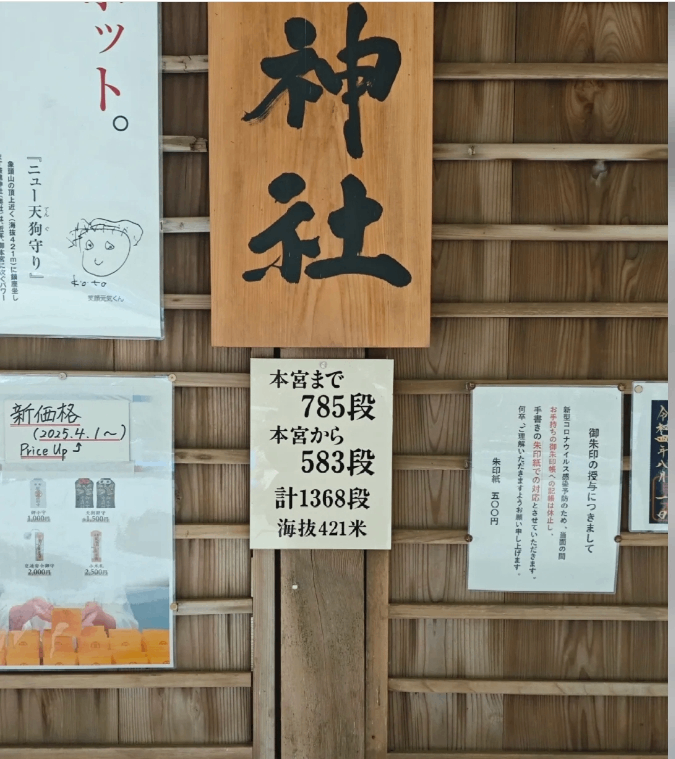 ット。
『ニュー天狗守り』
てんぐ
象頭山の頂上近く(海抜421m)に鎮座し
笑顔元気くん
神社
本宮まで
785段
本宮から
583段
計1368段
海抜421米
新価格
(2025.4.1~)
Price Up
1,000円
2,000円
2,500円
御朱印の授与につきまして
新型コロナウイルス感染予防のため、当面の間
お手持ちの御朱印帳への記帳は休止し、
手書きの朱印紙での対応とさせていただきます。
何卒、ご理解いただきますようお願い申し上げます。
朱印紙 五〇〇円